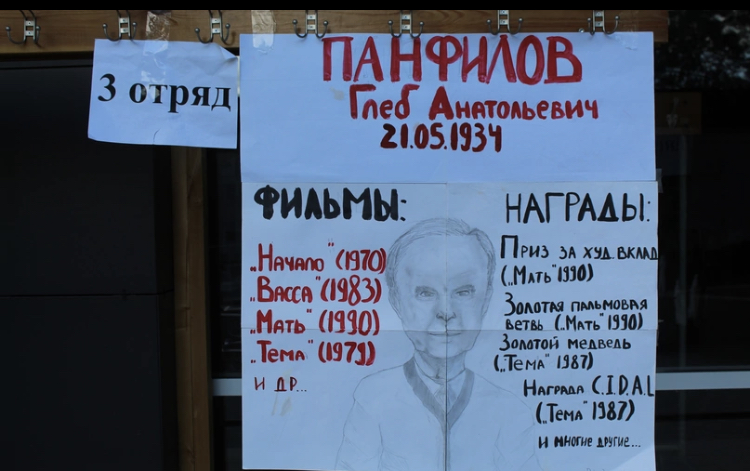 3 отряд
ПАНФИЛОВ
Глеб Анатольевич
21.05.1934
ФИЛЬМЫ:
„Начало" (1970)
„Васса" (1983)
„Мать" (1990)
„Тема" (1979)
и др...
НАГРАДЫ:
Приз за худ. вклад
(„Мать" 1990)
Золотая пальмовая
ветвь („Мать" 1990)
Золотой медведь
(„Тема" 1987)
Награда C.I.D.A.L
(„Тема" 1987)
и многие другие...